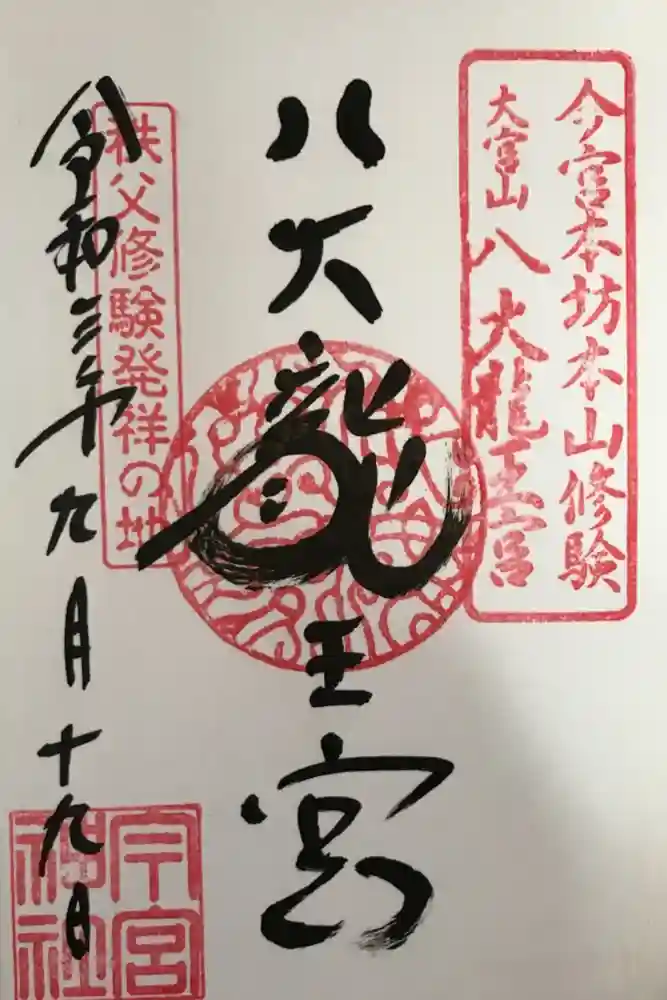 今宮本坊本山修験
大宮山八大龍王宮
八大龍王宮
秩父修験発祥の地
令和三年九月十九日
今宮
神社